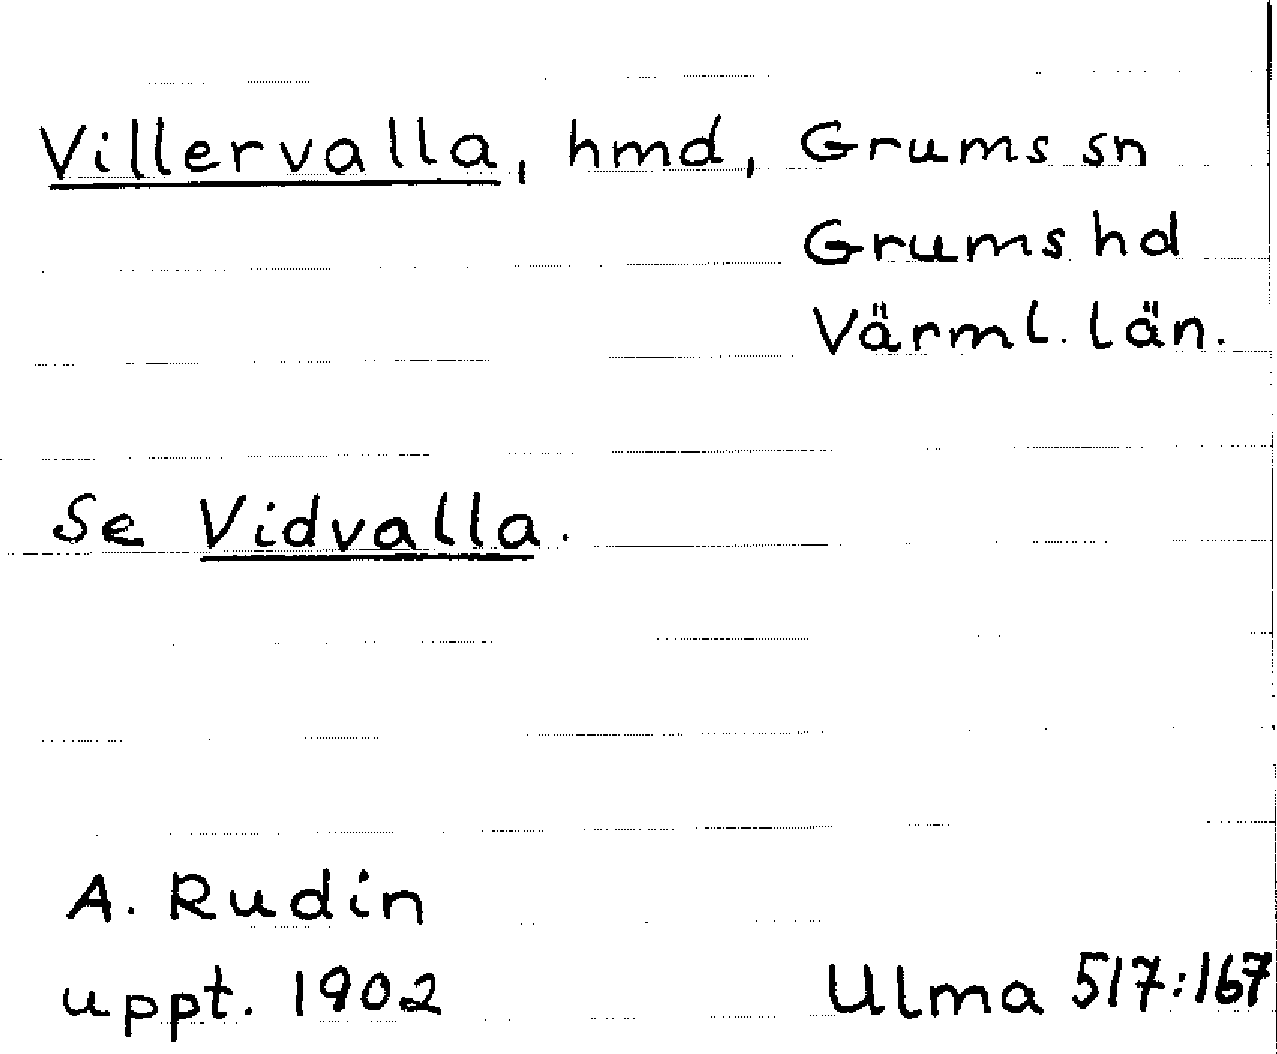 Villervalla, hmd, Grums sn
Grums hd
Värml. län.
Se Vidvalla.
A. Rudin
uppt. 1902
Ulma 517:167